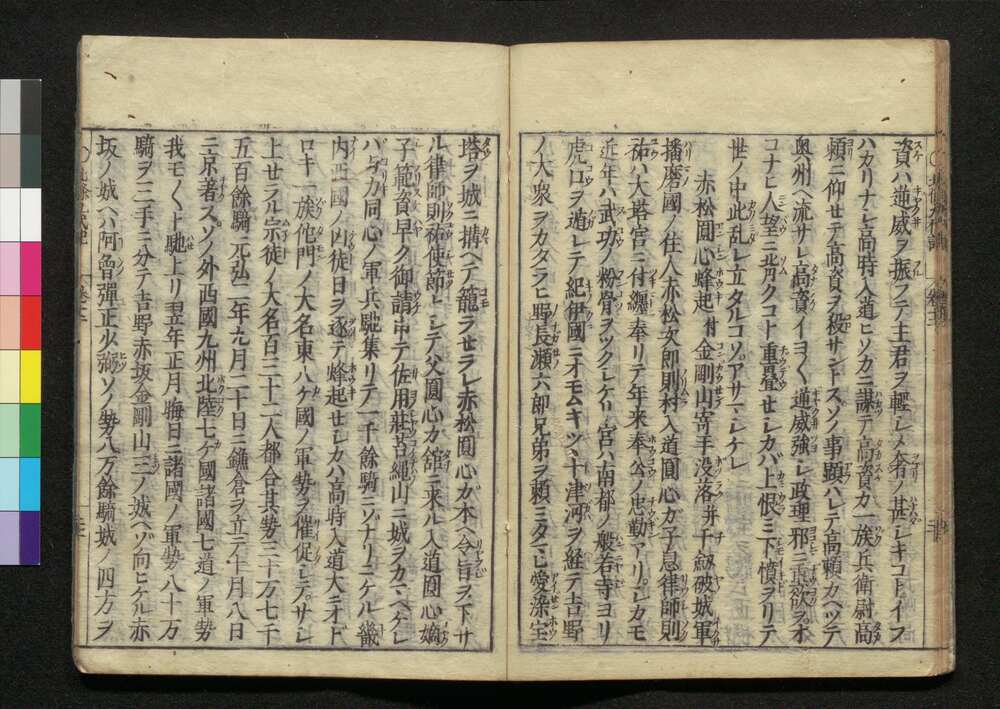 資ハ逆威ヲ振フテ主君ヲ輕シメ奢ノ甚シキコトイフ
ハカリナシ高時入道ヒソカニ謀テ高資カ一族兵衛尉高
頼ニ仰セテ高資ヲ殺サントスソノ事顕ハレテ高頼カヘツテ
奥州ヘ流サレ高資イヨ〱逆威強シ政理邪ニ貪欲ヲオ
コナヒ人望ニ背クコト重畳セシカバ上恨ミ下憤ヲリテ
世ノ中此乱レ立タルコソアサマシケレ
赤松圓心蜂起付金剛山寄手没落并千劔破城軍
播磨國ノ住人赤松次郎則村入道圓心カ子息律師則
祐ハ大塔宮ニ付纏奉リテ年来奉公ノ忠勤アリシカモ
近年ハ武功ノ粉骨ヲツクシケリ宮ハ南都ノ般若寺ヨリ
虎口ヲ遁レテ紀伊國ニオモムキツヽ十津河ヲ経テ吉野
ノ大衆ヲカタラヒ野長瀬六郎兄弟ヲ頼ミタマヒ愛染宝
塔ヲ城ニ搆ヘテ籠ラセラレ赤松圓心カ本ヘ令旨ヲ下サ
ル律師則祐使節トシテ父圓心カ舘ニ来ル入道圓心嫡
子範資早ク御請申テ佐用莊苔縄山ニ城ヲカマヘケレ
ハ与力同心ノ軍兵馳集リテ一千餘騎ニソナリニケル畿
内西國ノ凶徒日ヲ逐テ蜂起セシカハ高時入道大ニオト
ロキ一族他門ノ大名東八ケ國ノ軍勢ヲ催促シテサシ
上セラル宗徒ノ大名百三十二人都合其勢三十万七千
五百餘騎元弘二年九月二十日ニ鎌倉ヲ立テ十月八日
ニ京着スソノ外西國九州北陸七ケ國諸國七道ノ軍勢
我モ〱ト馳上リ翌年正月晦日ニ諸國ノ軍勢八十万
騎ヲ三手ニ分テ吉野赤坂金剛山三ノ城ヘゾ向ヒケル赤
坂ノ城ヘハ阿曾彈正少弼ソノ勢八万餘騎城ノ四方ヲ